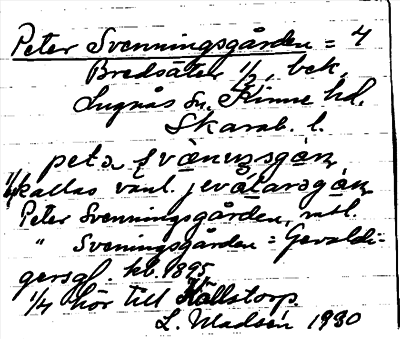 Peter Svenningsgården = 4
Bredsäter 1/2, bek.
Lugnås sn, Kinne hd.
Skarab. l.
petə
1/4 kallas vanl. jevàldərsgàɳ
Peter Svenningsgården, mtl.
" Svenningsgården = Gevaldi-
gersgl. kb. 1895
1/4 hör till Källstorp.
L. Madsén 1930